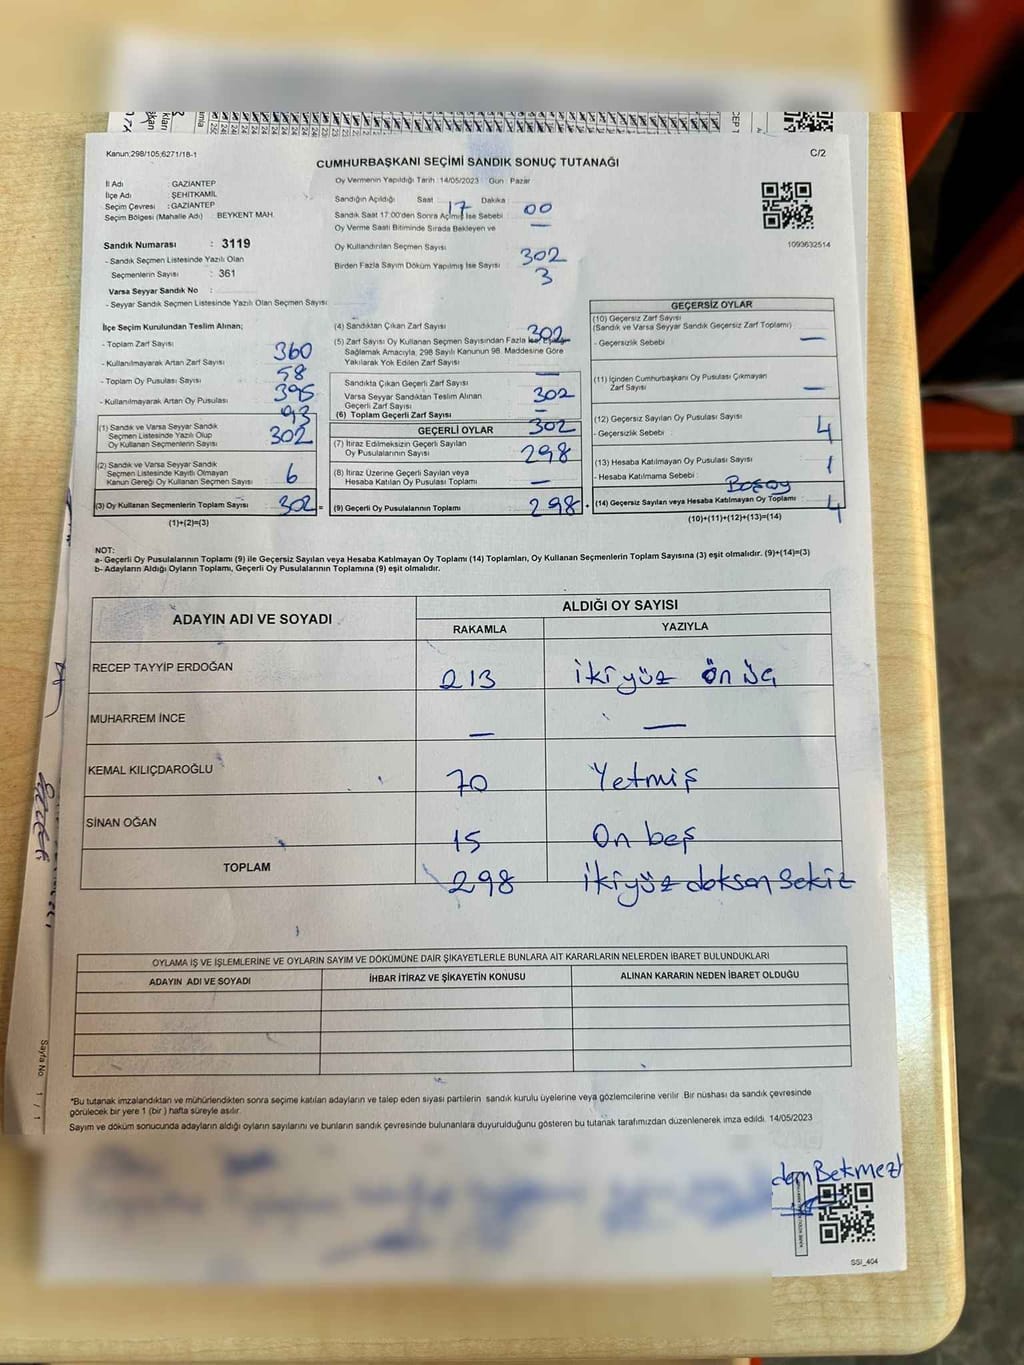 Kanun:298/105;6271/18-1
CUMHURBAŞKANI SEÇİMİ SANDIK SONUÇ TUTANAĞI
C/2
İl Adı : GAZİANTEP
İlçe Adı : ŞEHİTKAMİL
Seçim Çevresi : GAZİANTEP
Seçim Bölgesi (Mahalle Adı) : BEYKENT MAH.
Sandık Numarası : 3119
- Sandık Seçmen Listesinde Yazılı Olan
Seçmenlerin Sayısı : 361
Varsa Seyyar Sandık No :
- Seyyar Sandık Seçmen Listesinde Yazılı Olan Seçmen Sayısı:
Oy Vermenin Yapıldığı Tarih :14/05/2023 Gün : Pazar
Sandığın Açıldığı Saat 17 Dakika 00
Sandık Saat 17:00'den Sonra Açılmış İse Sebebi —
Oy Verme Saati Bitiminde Sırada Bekleyen ve
Oy Kullandırılan Seçmen Sayısı 302
Birden Fazla Sayım Döküm Yapılmış İse Sayısı 3
1093632514
İlçe Seçim Kurulundan Teslim Alınan;
- Toplam Zarf Sayısı 360
- Kullanılmayarak Artan Zarf Sayısı 58
- Toplam Oy Pusulası Sayısı 395
- Kullanılmayarak Artan Oy Pusulası 93
(1) Sandık ve Varsa Seyyar Sandık
Seçmen Listesinde Yazılı Olup
Oy Kullanan Seçmenlerin Sayısı 302
(2) Sandık ve Varsa Seyyar Sandık
Seçmen Listesinde Kayıtlı Olmayan
Kanun Gereği Oy Kullanan Seçmen Sayısı 6
(3) Oy Kullanan Seçmenlerin Toplam Sayısı 302 =
(1)+(2)=(3)
(4) Sandıktan Çıkan Zarf Sayısı 302
(5) Zarf Sayısı Oy Kullanan Seçmen Sayısından Fazla İse, Eşitliği
Sağlamak Amacıyla, 298 Sayılı Kanunun 98. Maddesine Göre
Yakılarak Yok Edilen Zarf Sayısı —
Sandıkta Çıkan Geçerli Zarf Sayısı 302
Varsa Seyyar Sandıktan Teslim Alınan
Geçerli Zarf Sayısı —
(6) Toplam Geçerli Zarf Sayısı 302
GEÇERLİ OYLAR
(7) İtiraz Edilmeksizin Geçerli Sayılan
Oy Pusulalarının Sayısı 298
(8) İtiraz Üzerine Geçerli Sayılan veya
Hesaba Katılan Oy Pusulası Toplamı —
(9) Geçerli Oy Pusulalarının Toplamı 298 +
GEÇERSİZ OYLAR
(10) Geçersiz Zarf Sayısı
(Sandık ve Varsa Seyyar Sandık Geçersiz Zarf Toplamı)
- Geçersizlik Sebebi : —
(11) İçinden Cumhurbaşkanı Oy Pusulası Çıkmayan
Zarf Sayısı —
(12) Geçersiz Sayılan Oy Pusulası Sayısı 4
- Geçersizlik Sebebi :
(13) Hesaba Katılmayan Oy Pusulası Sayısı 1
- Hesaba Katılmama Sebebi :
(14) Geçersiz Sayılan veya Hesaba Katılmayan Oy Toplamı 4
(10)+(11)+(12)+(13)=(14)
NOT:
a- Geçerli Oy Pusulalarının Toplamı (9) ile Geçersiz Sayılan veya Hesaba Katılmayan Oy Toplamı (14) Toplamları, Oy Kullanan Seçmenlerin Toplam Sayısına (3) eşit olmalıdır. (9)+(14)=(3)
b- Adayların Aldığı Oyların Toplamı, Geçerli Oy Pusulalarının Toplamına (9) eşit olmalıdır.
ADAYIN ADI VE SOYADI
ALDIĞI OY SAYISI
RAKAMLA YAZIYLA
RECEP TAYYİP ERDOĞAN 213 ikiyüz ön üç
MUHARREM İNCE — —
KEMAL KILIÇDAROĞLU 70 Yetmiş
SİNAN OĞAN 15 On beş
TOPLAM 298 ikiyüz doksan sekiz
OYLAMA İŞ VE İŞLEMLERİNE VE OYLARIN SAYIM VE DÖKÜMÜNE DAİR ŞİKAYETLERLE BUNLARA AİT KARARLARIN NELERDEN İBARET BULUNDUKLARI
ADAYIN ADI VE SOYADI İHBAR İTİRAZ VE ŞİKAYETİN KONUSU ALINAN KARARIN NEDEN İBARET OLDUĞU
*Bu tutanak imzalandıktan ve mühürlendikten sonra seçime katılan adayların ve talep eden siyasi partilerin sandık kurulu üyelerine veya gözlemcilerine verilir. Bir nüshası da sandık çevresinde
görülecek bir yere 1 (bir ) hafta süreyle asılır.
Sayım ve döküm sonucunda adayların aldığı oyların sayılarını ve bunların sandık çevresinde bulunanlara duyurulduğunu gösteren bu tutanak tarafımızdan düzenlenerek imza edildi. 14/05/2023
Sayfa No 1 / 1
dem Bekmez
SSI_404